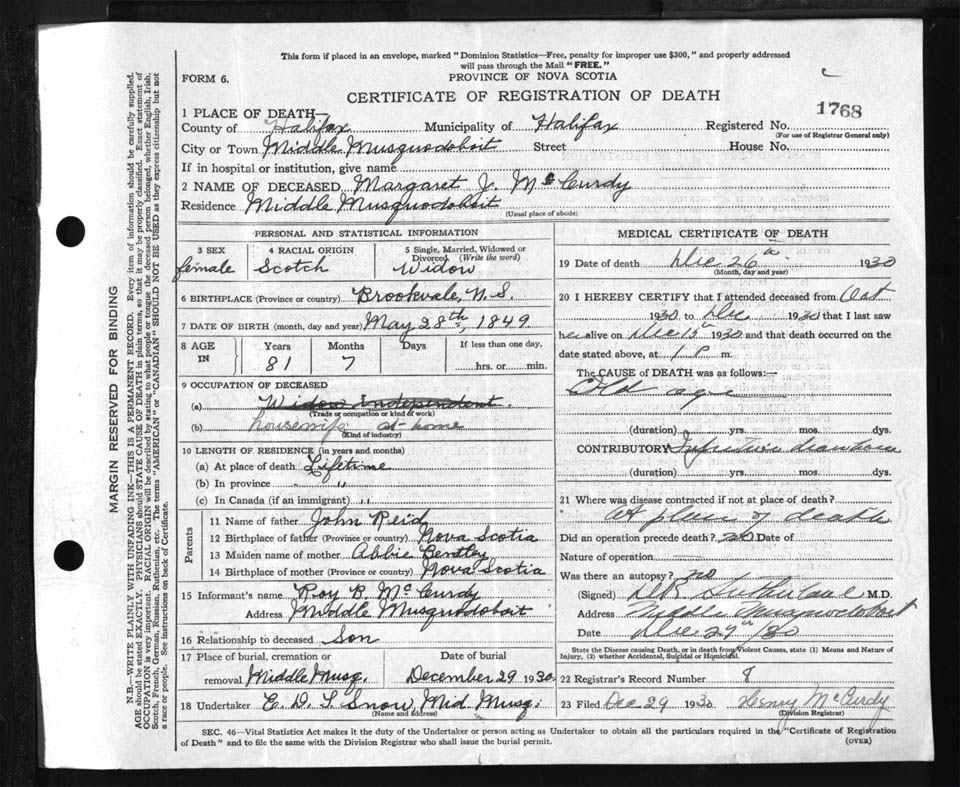 This form if placed in an envelope, marked "Dominion Statistics—Free, penalty for improper use $300," and properly addressed
will pass through the Mail "FREE."
FORM 6.
PROVINCE OF NOVA SCOTIA
CERTIFICATE OF REGISTRATION OF DEATH
1768
1 PLACE OF DEATH—
County of Halifax Municipality of Halifax Registered No.
(For use of Registrar General only)
City or Town Middle Musquodoboit Street House No.
If in hospital or institution, give name
2 NAME OF DECEASED Margaret J. McCurdy
Residence Middle Musquodoboit
(Usual place of abode)
PERSONAL AND STATISTICAL INFORMATION
3 SEX 4 RACIAL ORIGIN 5 Single, Married, Widowed or
Divorced. (Write the word)
female Scotch Widow
6 BIRTHPLACE (Province or country) Brookvale, N.S.
7 DATE OF BIRTH (month, day and year) May 28th, 1849.
8 AGE IN Years Months Days If less than one day,
81 7 hrs. or min.
9 OCCUPATION OF DECEASED
(a) Widow Independent.
(Trade or occupation or kind of work)
(b) housewife at home
(Kind of industry)
10 LENGTH OF RESIDENCE (in years and months)
(a) At place of death Lifetime
(b) In province " "
(c) In Canada (if an immigrant) "
Parents
11 Name of father John Reid
12 Birthplace of father (Province or country) Nova Scotia
13 Maiden name of mother Abbie Bentley
14 Birthplace of mother (Province or country) Nova Scotia
15 Informant's name Roy B. McCurdy
Address Middle Musquodoboit
16 Relationship to deceased Son
17 Place of burial, cremation or Date of burial
removal Middle Musq. December 29 1930
18 Undertaker E. D. L. Snow, Mid. Musq.
(Name and address)
MEDICAL CERTIFICATE OF DEATH
19 Date of death Dec 26th 1930
(Month, day and year)
20 I HEREBY CERTIFY that I attended deceased from Oct
1930 to Dec 1930 that I last saw
her alive on Dec 15th 1930 and that death occurred on the
date stated above, at 1 P m.
The CAUSE of DEATH was as follows:—
Old age
(duration) yrs. mos. dys.
CONTRIBUTORY
(duration) yrs. mos. dys.
21 Where was disease contracted if not at place of death?
At place of death
Did an operation precede death? no Date of
Nature of operation
Was there an autopsy? no
(Signed) M.D.
Address Middle Musquodoboit
Date Dec 29th/30
State the Disease causing Death, or in death from Violent Causes, state (1) Means and Nature of
Injury, (2) whether Accidental, Suicidal or Homicidal.
22 Registrar's Record Number 8
23 Filed Dec 29 1930 Henry McCurdy
(Division Registrar)
SEC. 46—Vital Statistics Act makes it the duty of the Undertaker or person acting as Undertaker to obtain all the particulars required in the "Certificate of Registration
of Death" and to file the same with the Division Registrar who shall issue the burial permit.
(OVER)
MARGIN RESERVED FOR BINDING
N.B.—WRITE PLAINLY WITH UNFADING INK—THIS IS A PERMANENT RECORD. Every item of information should be carefully supplied.
AGE should be stated EXACTLY. PHYSICIANS should STATE CAUSE OF DEATH in plain terms, so that it may be properly classified. Exact statement of
OCCUPATION is very important. RACIAL ORIGIN will be described by stating to what people or tongue the deceased person belonged, whether English, Irish,
Scotch, French, German, Russian, Ruthenian, etc. The terms "AMERICAN" or "CANADIAN" SHOULD NOT BE USED as they express citizenship but not
a race or people. See instructions on back of Certificate.